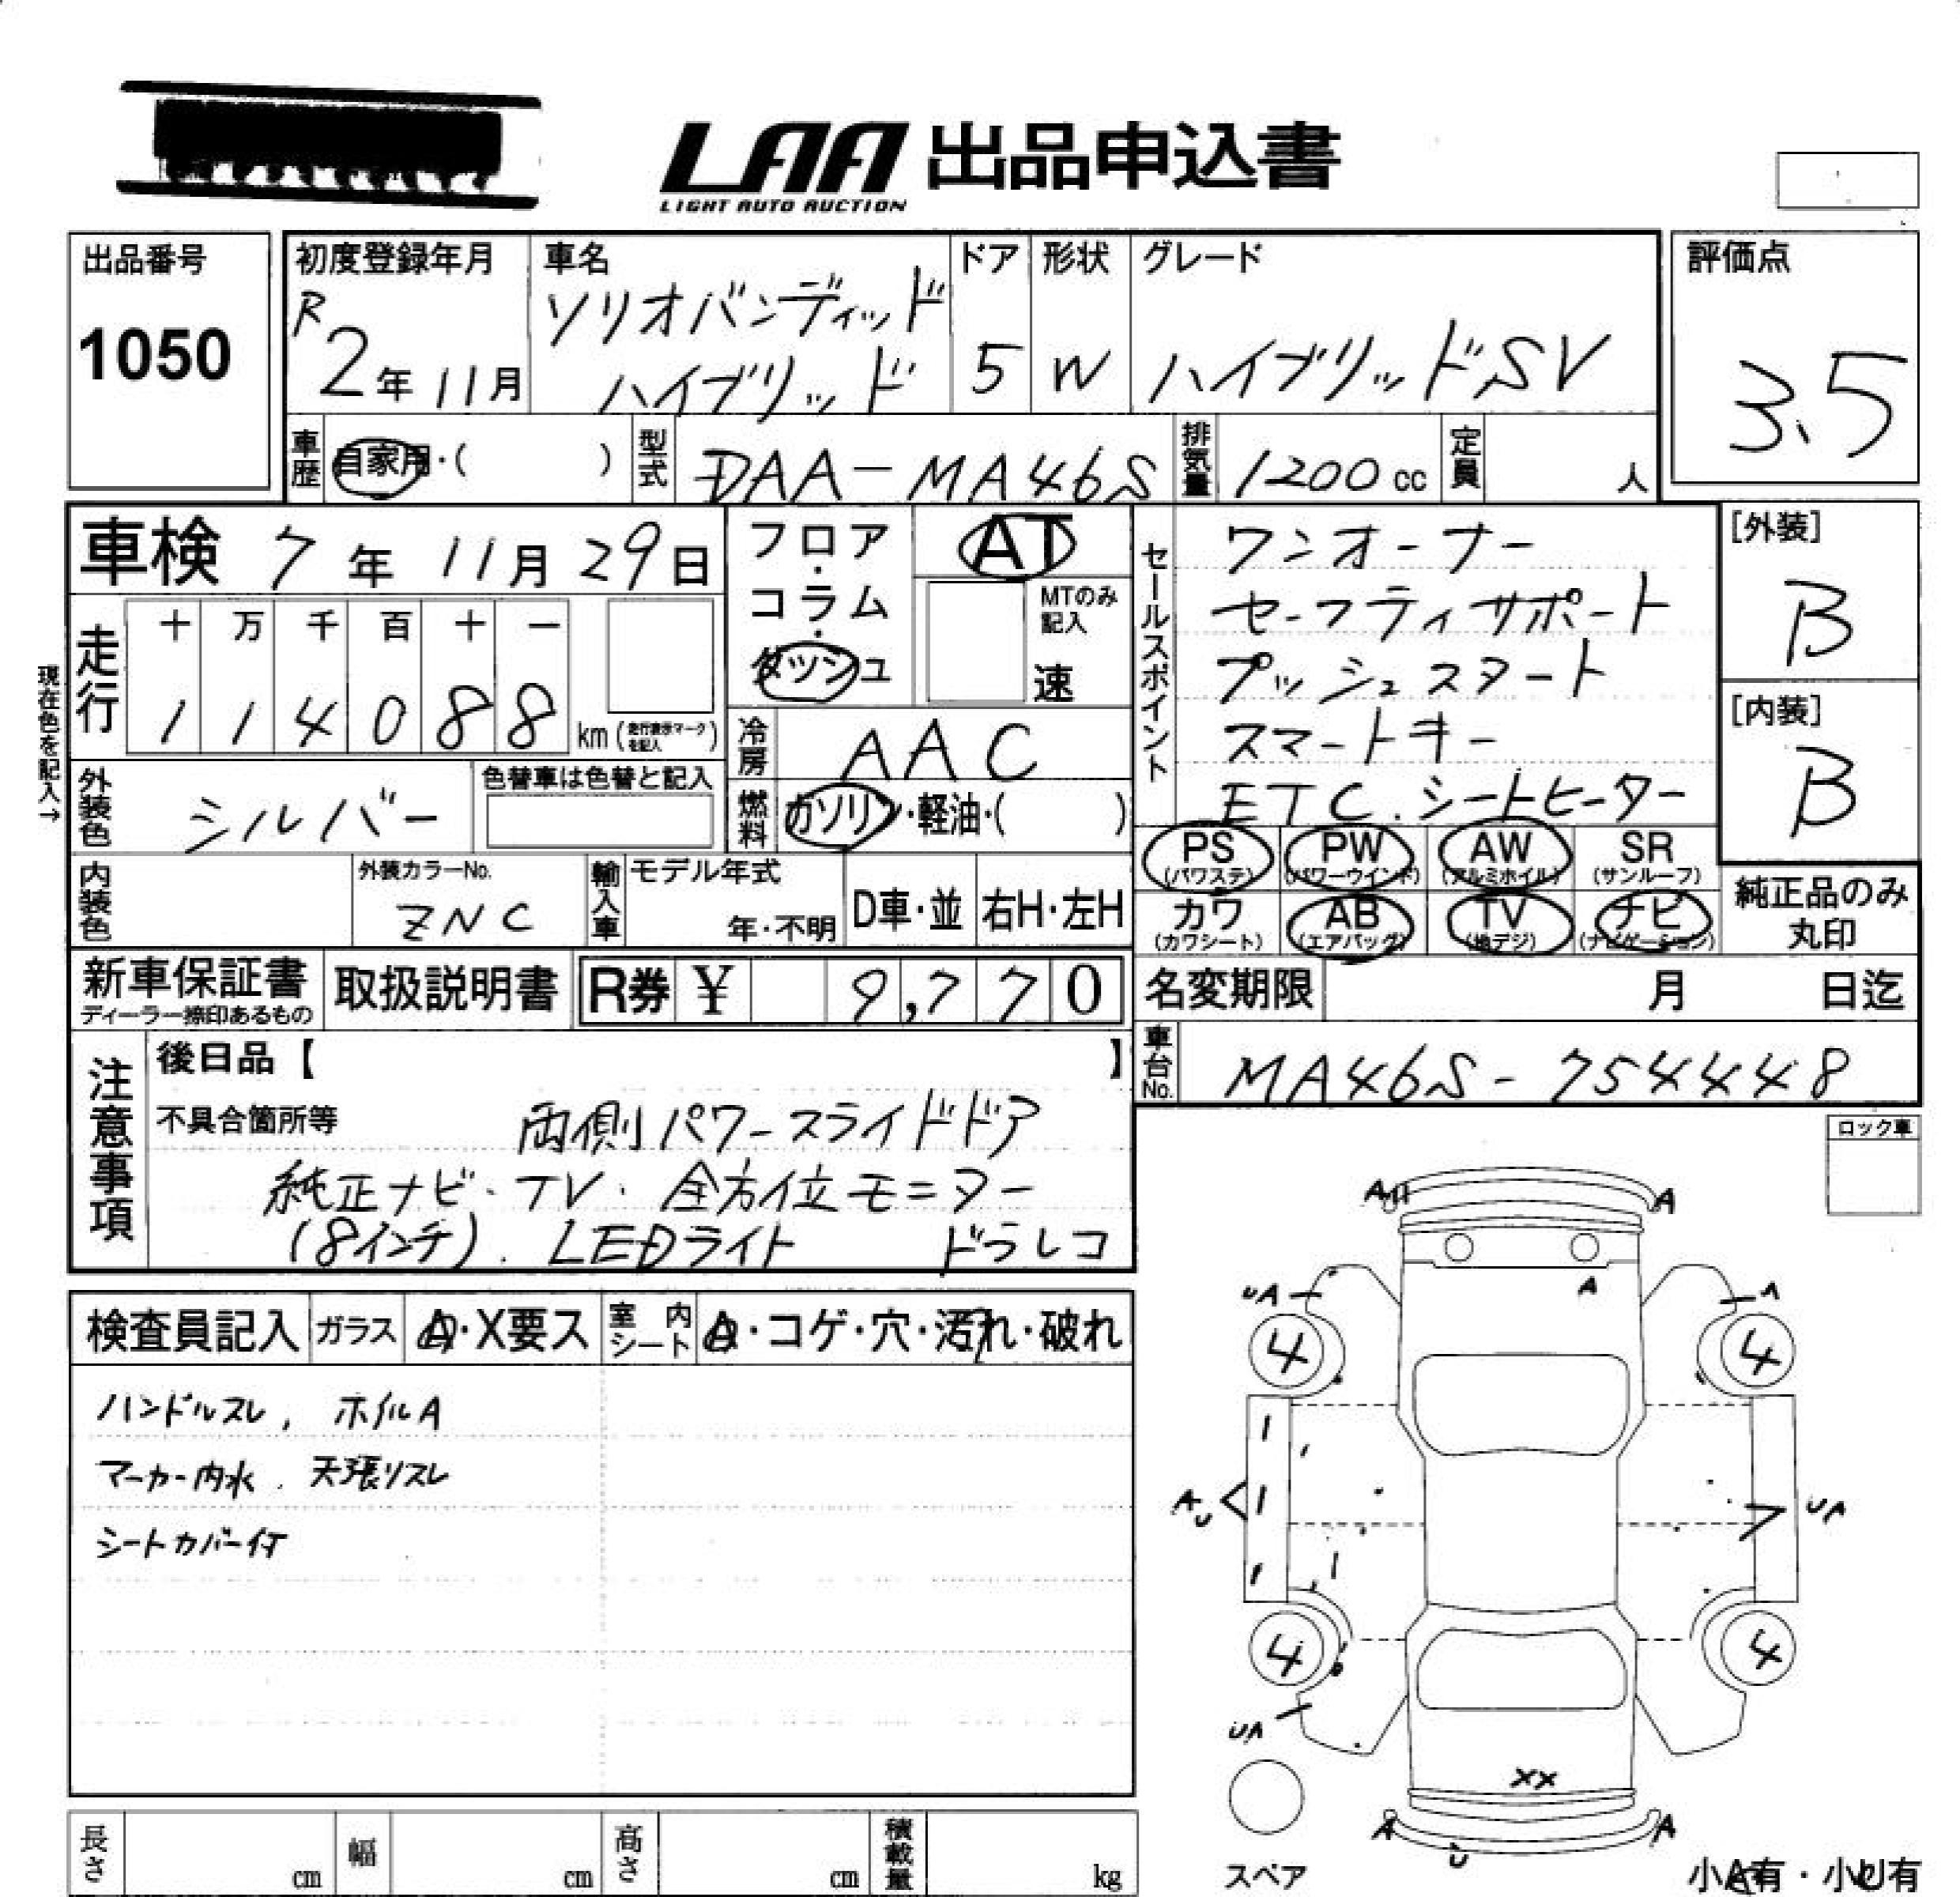 LAA 出品申込書
LIGHT AUTO AUCTION
出品番号
1050
初度登録年月
R
2年 11月
車名
ソリオバンディッド
ハイブリッド
ドア
5
形状
W
グレード
ハイブリッドSV
評価点
3.5
車歴
自家用・( )
型式
DAA-MA46S
排気量
1200cc
定員
人
車検 7年 11月 29日
フロア・コラム・ダッシュ
AT
MTのみ記入
速
セールスポイント
ワンオーナー
セーフティサポート
プッシュスタート
スマートキー
ETC.シートヒーター
[外装]
B
[内装]
B
現在色を記入→
走行
十 万 千 百 十 一
1 1 4 0 8 8 km(走行表示マークを記入)
冷房
AAC
外装色
シルバー
色替車は色替と記入
燃料
ガソリン・軽油・( )
PS (パワステ)
PW (パワーウインド)
AW (アルミホイル)
SR (サンルーフ)
カワ (カワシート)
AB (エアバッグ)
TV (地デジ)
ナビ (ナビゲーション)
純正品のみ
丸印
内装色
外装カラーNo.
ZNC
輸入車
モデル年式
年・不明
D車・並
右H・左H
新車保証書
ディーラー捺印あるもの
取扱説明書
R券 ¥ 9,770
名変期限 月 日迄
車台No.
MA46S-754448
注意事項
後日品【 】
不具合箇所等
両側パワースライドドア
純正ナビ・TV・全方位モニター
(8インチ). LEDライト ドラレコ
ロック車
検査員記入
ガラス
A・X要ス
室内シート
A・コゲ・穴・汚れ・破れ
ハンドルスレ, ホイルA
マーカー内水. 天張リスレ
シートカバー付
A A
A
UA A
4 4
A U UA
4 4
UA
XX
A U A
スペア
小A有・小U有
長さ cm
幅 cm
高さ cm
積載量 kg